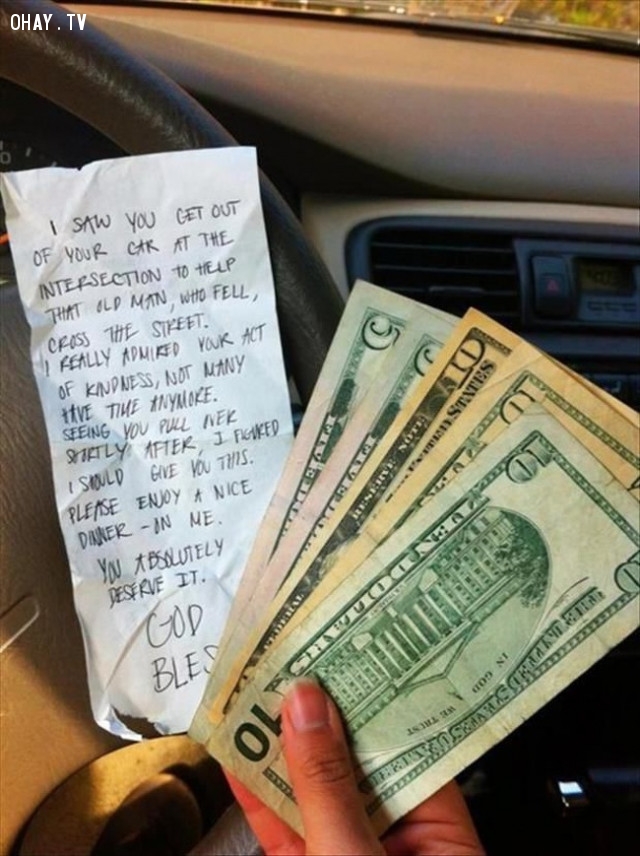 OHAY.TV
I SAW YOU GET OUT
OF YOUR CAR AT THE
INTERSECTION TO HELP
THAT OLD MAN, WHO FELL,
CROSS THE STREET.
I REALLY ADMIRED YOUR ACT
OF KINDNESS, NOT MANY
HAVE TIME ANYMORE.
SEEING YOU PULL OVER
SHORTLY AFTER, I FIGURED
I SHOULD GIVE YOU THIS.
PLEASE ENJOY A NICE
DINNER - ON ME.
YOU ABSOLUTELY
DESERVE IT.
GOD
BLES
10
IN GOD
WE TRUST
THE UNITED STATES OF AMERICA